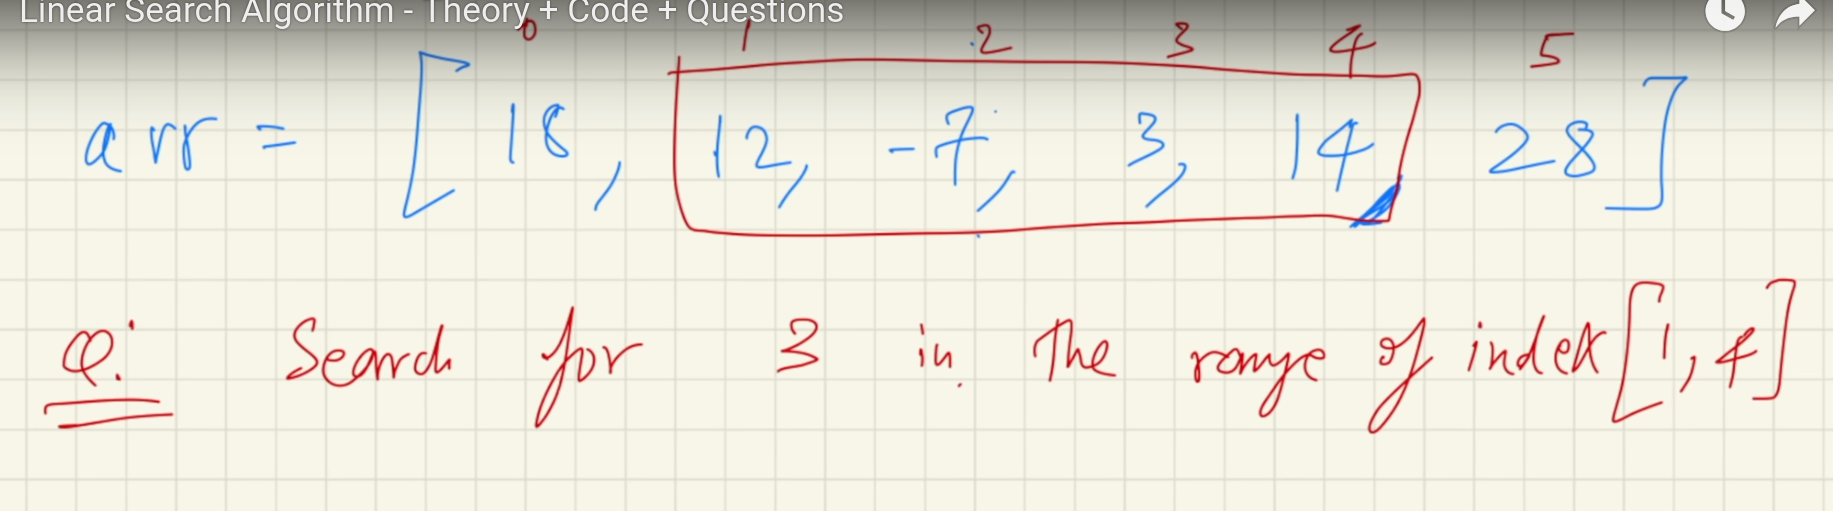 Linear Search Algorithm - Theory + Code + Questions
0 1 2 3 4 5
arr = [ 18, 12, -7, 3, 14, 28 ]
Q: Search for 3 in the range of index [1, 4]